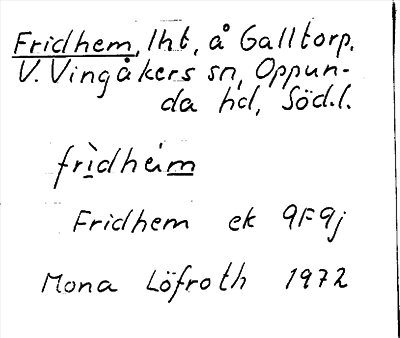 Fridhem, lht, å Galltorp.
V. Vingåkers sn, Oppun-
da hd, Söd.l.
frìdheim
Fridhem ek 9F9j
Mona Löfroth 1972